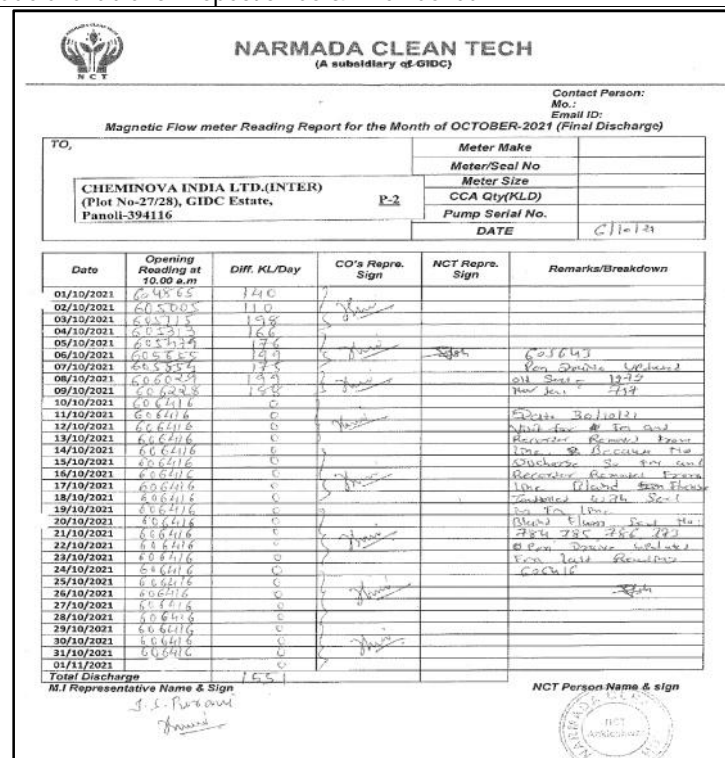 NCT
NARMADA CLEAN TECH
(A subsidiary of GIDC)
Contact Person:
Mo.:
Email ID:
Magnetic Flow meter Reading Report for the Month of OCTOBER-2021 (Final Discharge)
TO,
CHEMINOVA INDIA LTD.(INTER)
(Plot No-27/28), GIDC Estate, P-2
Panoli-394116
Meter Make
Meter/Seal No
Meter Size
CCA Qty(KLD)
Pump Serial No.
DATE 6/10/21
Date Opening Reading at 10.00 a.m Diff. KL/Day CO's Repre. Sign NCT Repre. Sign Remarks/Breakdown
01/10/2021 604865 140
02/10/2021 605005 110
03/10/2021 605115 198
04/10/2021 605313 166
05/10/2021 605479 176
06/10/2021 605655 199 605643
07/10/2021 175 Pen Drive Updated
08/10/2021 606029 199
09/10/2021 606228
10/10/2021 606416 0
11/10/2021 606416 0 Date 30/10/21
12/10/2021 606416 0 Visit for
13/10/2021 606416 0 Recorder Removed From
14/10/2021 606416 0 Line Because No
15/10/2021 606416 0 Discharge So and
16/10/2021 606416 0 Recorder Removed From
17/10/2021 606416 0 Line Blind
18/10/2021 606416 0 with Seal
19/10/2021 606416 0 Line
20/10/2021 606416 0 Blind Seal No:
21/10/2021 606416 0 784 785 786
22/10/2021 606416 0 Pen Drive Updated
23/10/2021 606416 0 Last Reading
24/10/2021 606416 0 606416
25/10/2021 606416 0
26/10/2021 606416 0
27/10/2021 606416 0
28/10/2021 606416 0
29/10/2021 606416 0
30/10/2021 606416 0
31/10/2021 606416 0
01/11/2021 0
Total Discharge 1551
M.I Representative Name & Sign NCT Person Name & sign
NCT
Ankleshwar